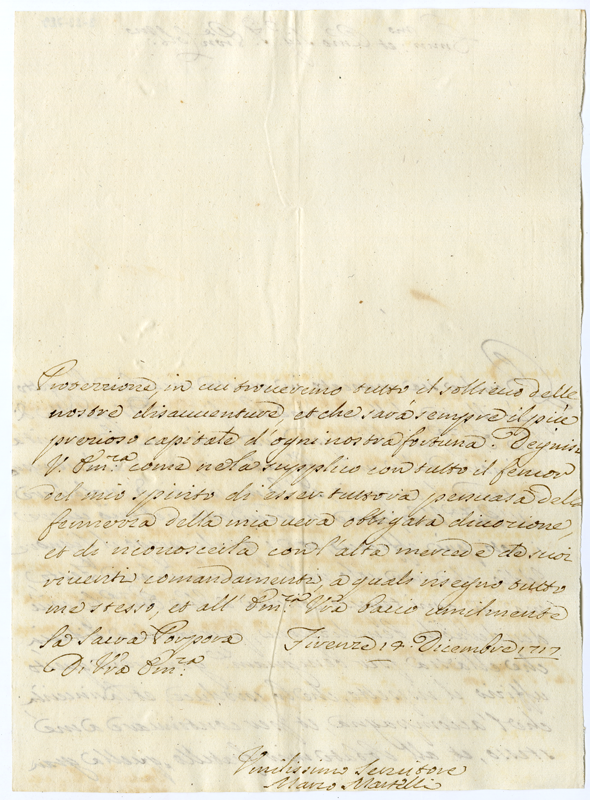 Protezzione, in cui troveremo tutto il sollievo delle
nostre disavventure, et che sarà sempre il più
prezioso capitale d'ogni nostra fortuna. Degnisi
V. Em.za come ne la supplico con tutto il fervor
del mio spirito di esser tuttavia persuasa della
fermezza della mia vera obbligata divozione,
et di riconoscerla con l'alta mercede de suoi
riveriti comandamenti, a quali rasegno tutto
me stesso, et all' Em.za Vra bacio umilmente
la Sacra Porpora Firenze 14. Dicembre 1717
Di Vra Em.za
Umilissimo Servitore
Marco Martelli